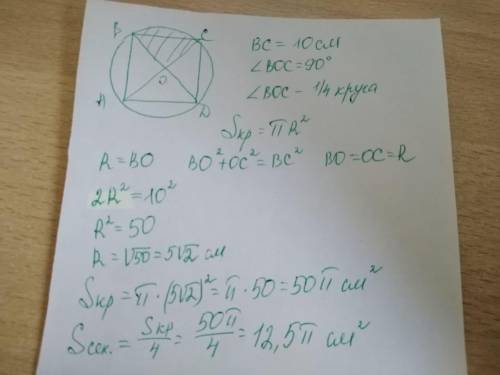 B C
O
A D
BC = 10 см
∠BOC = 90°
∠BOC – 1/4 круга
Sкр = πR²
R = BO BO² + OC² = BC² BO = OC = R
2R² = 10²
R² = 50
R = √50 = 5√2 см
Sкр = π · (5√2)² = π · 50 = 50π см²
Sсек. = Sкр/4 = 50π/4 = 12,5π см²